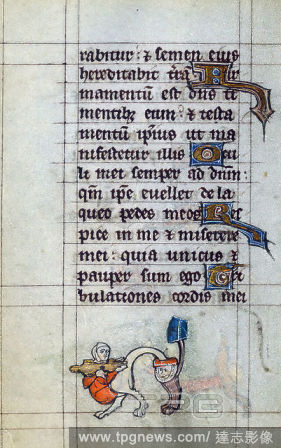 rabitur: ⁊ semen eius
hereditabit tr̄a Fir
mamentū est dn̄s ti
mentibꝫ eum: ⁊ testa
mentū ipsius ut ma
nifestetur illis Ocu
li mei semper ad dn̄m:
qm̄ ipse euellet de la
queo pedes meos Res
pice in me ⁊ miserere
mei: quia unicus ⁊
pauper sum ego Tri
bulationes cordis mei
www.tpgnews.com/達志影像